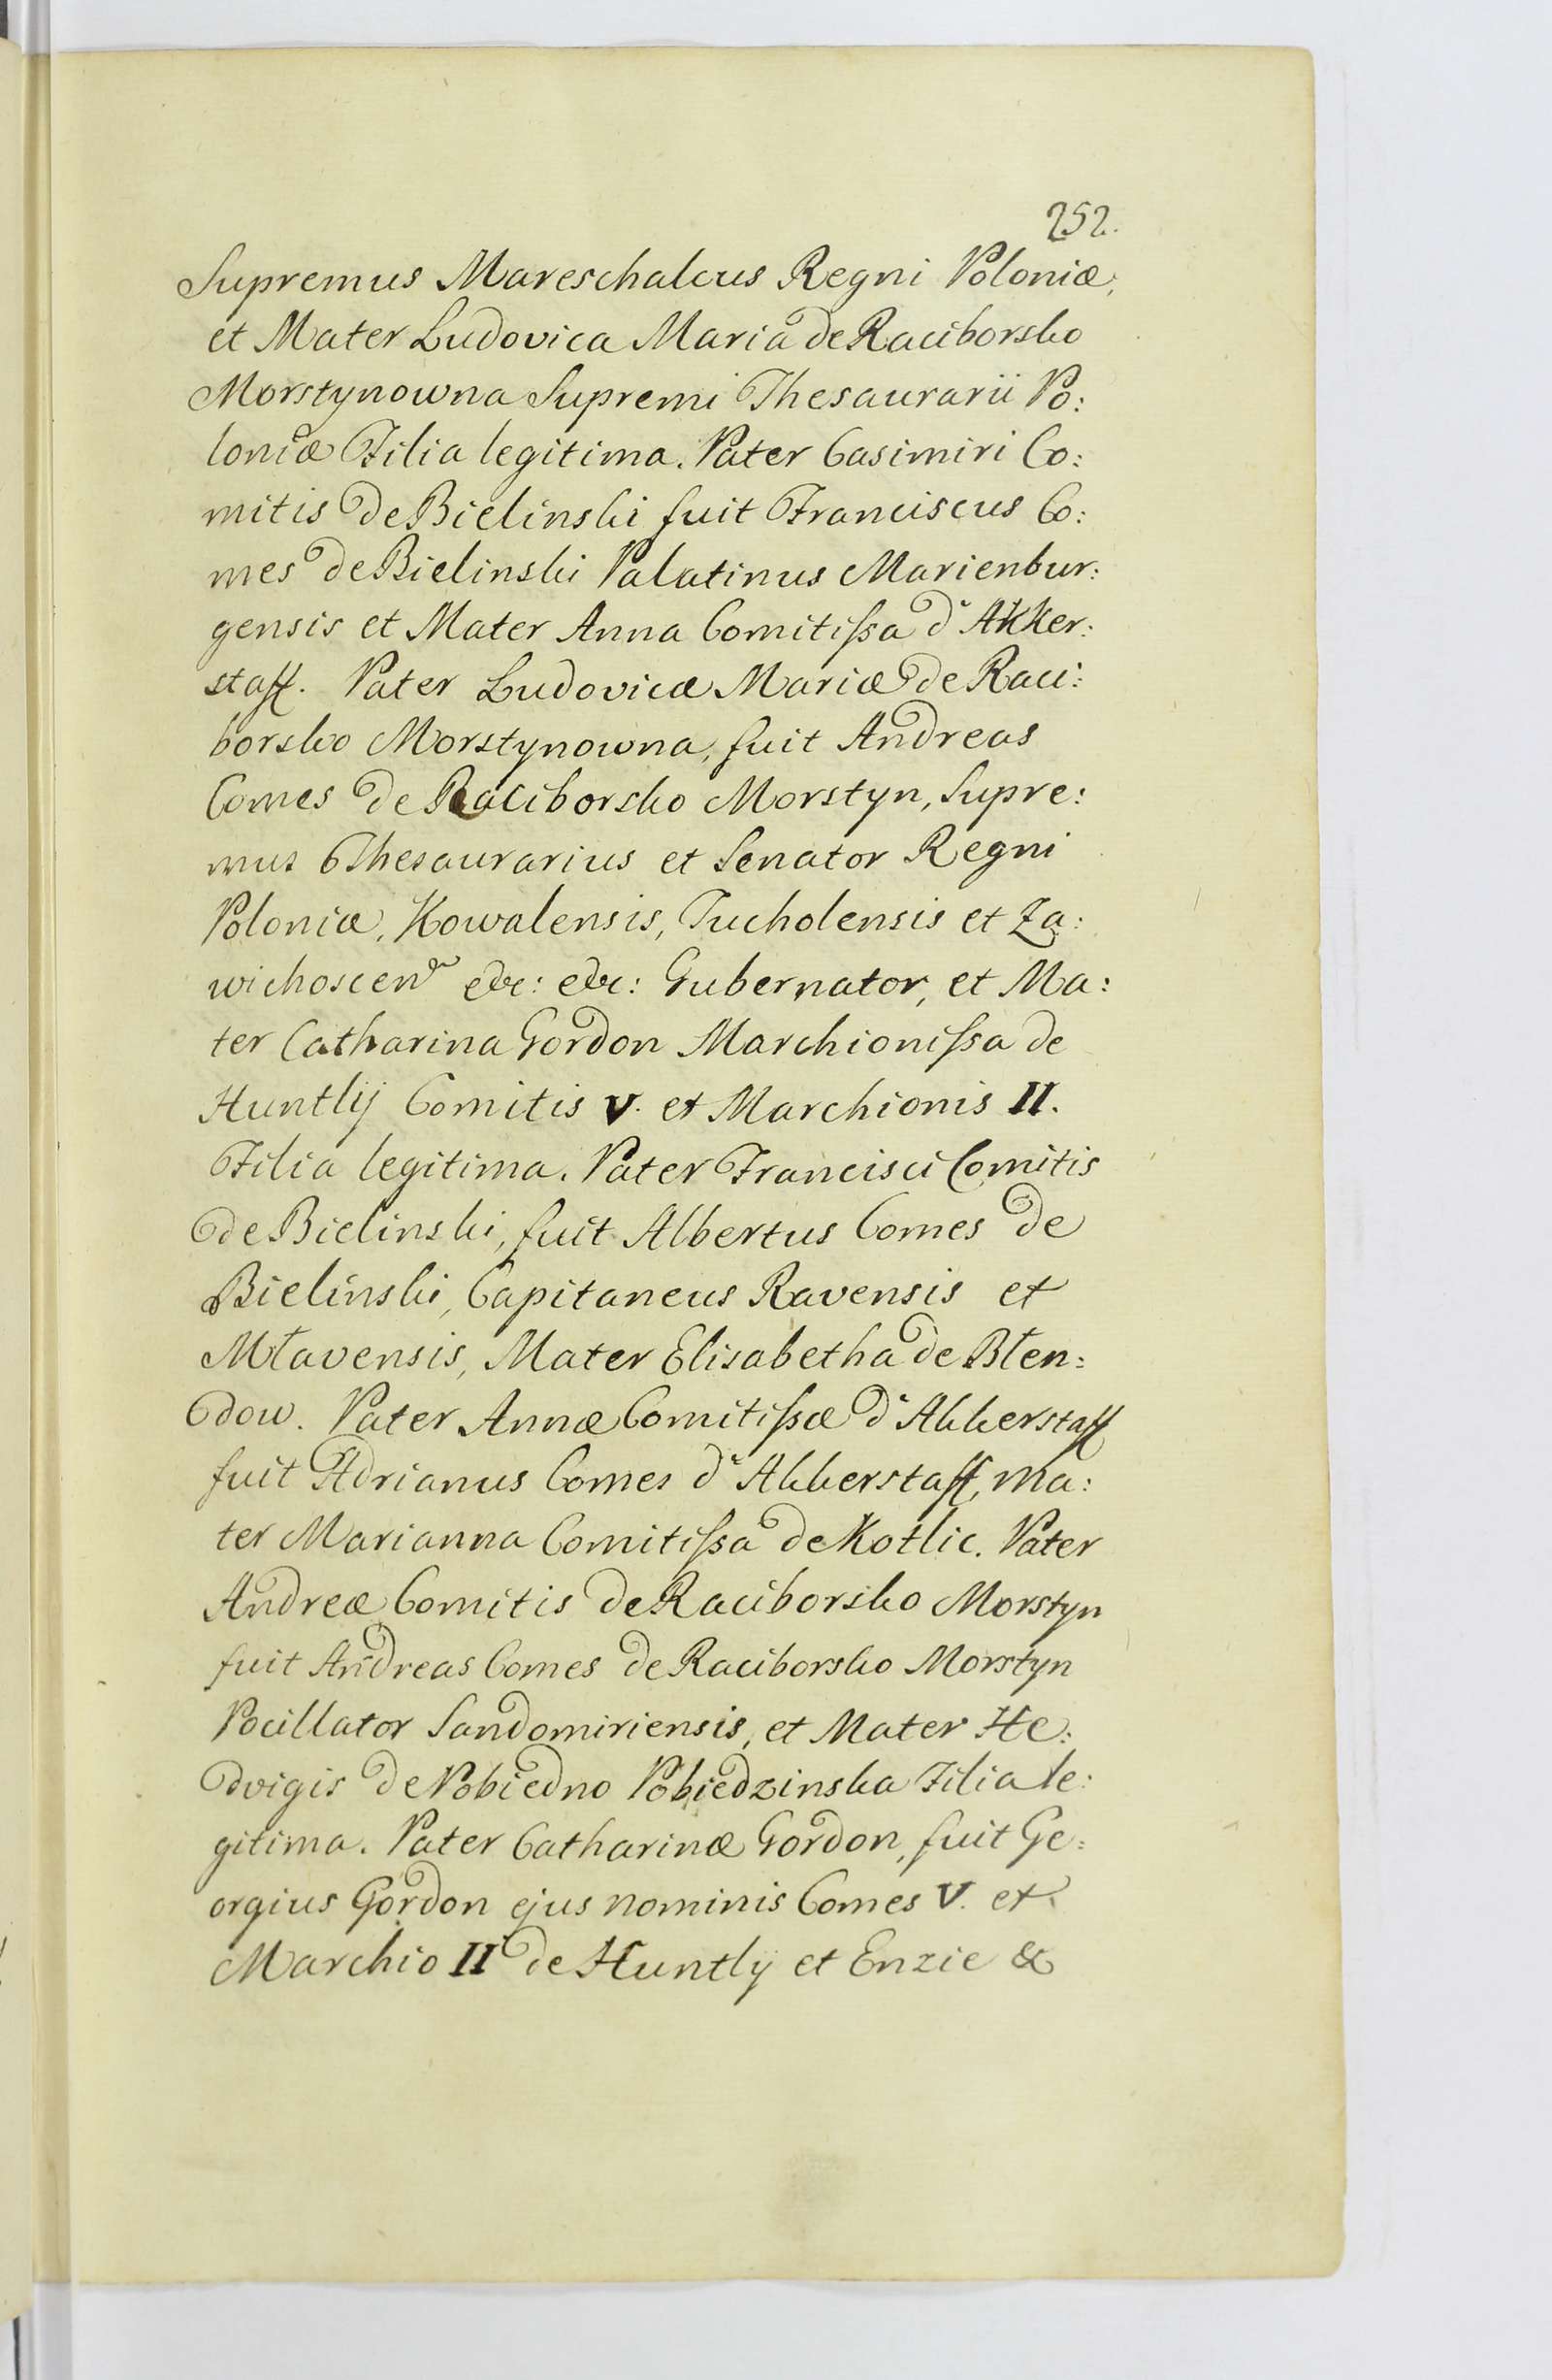 252.
Supremus Mareschalcus Regni Poloniæ,
et Mater Ludovica Maria de Raciborsko
Morstynowna Supremi Thesaurarii Po:
loniæ Filia legitima. Pater Casimiri Co:
mitis de Bielinski fuit Franciscus Co:
mes de Bielinski Palatinus Marienbur:
gensis et Mater Anna Comitiſsa d'Akker:
staff. Pater Ludovicæ Mariæ de Raci:
borsko Morstynowna, fuit Andreas
Comes de Raciborsko Morstyn, Supre:
mus Thesaurarius et Senator Regni
Poloniæ, Kowalensis, Tucholensis et Za:
wichoscen etc: etc: Gubernator, et Ma:
ter Catharina Gordon Marchioniſsa de
Huntlÿ Comitis V. et Marchionis II.
Filia legitima. Pater Francisci Comitis
de Bielinski, fuit Albertus Comes de
Bielinski, Capitaneus Ravensis et
Mławensis, Mater Elisabetha de Błen:
dow. Pater Annæ Comitiſsæ d'Akkerstaff
fuit Adrianus Comes d'Akkerstaff, Ma:
ter Marianna Comitiſsa de Kotlic. Pater
Andreæ Comitis de Raciborsko Morstyn
fuit Andreas Comes de Raciborsko Morstyn
Pocillator Sandomiriensis, et Mater He:
dvigis de Pobiedno Pobiedzinska Filia le:
gitima. Pater Catharinæ Gordon, fuit Ge:
orgius Gordon ejus nominis Comes V. et
Marchio II de Huntlÿ et Enzie &